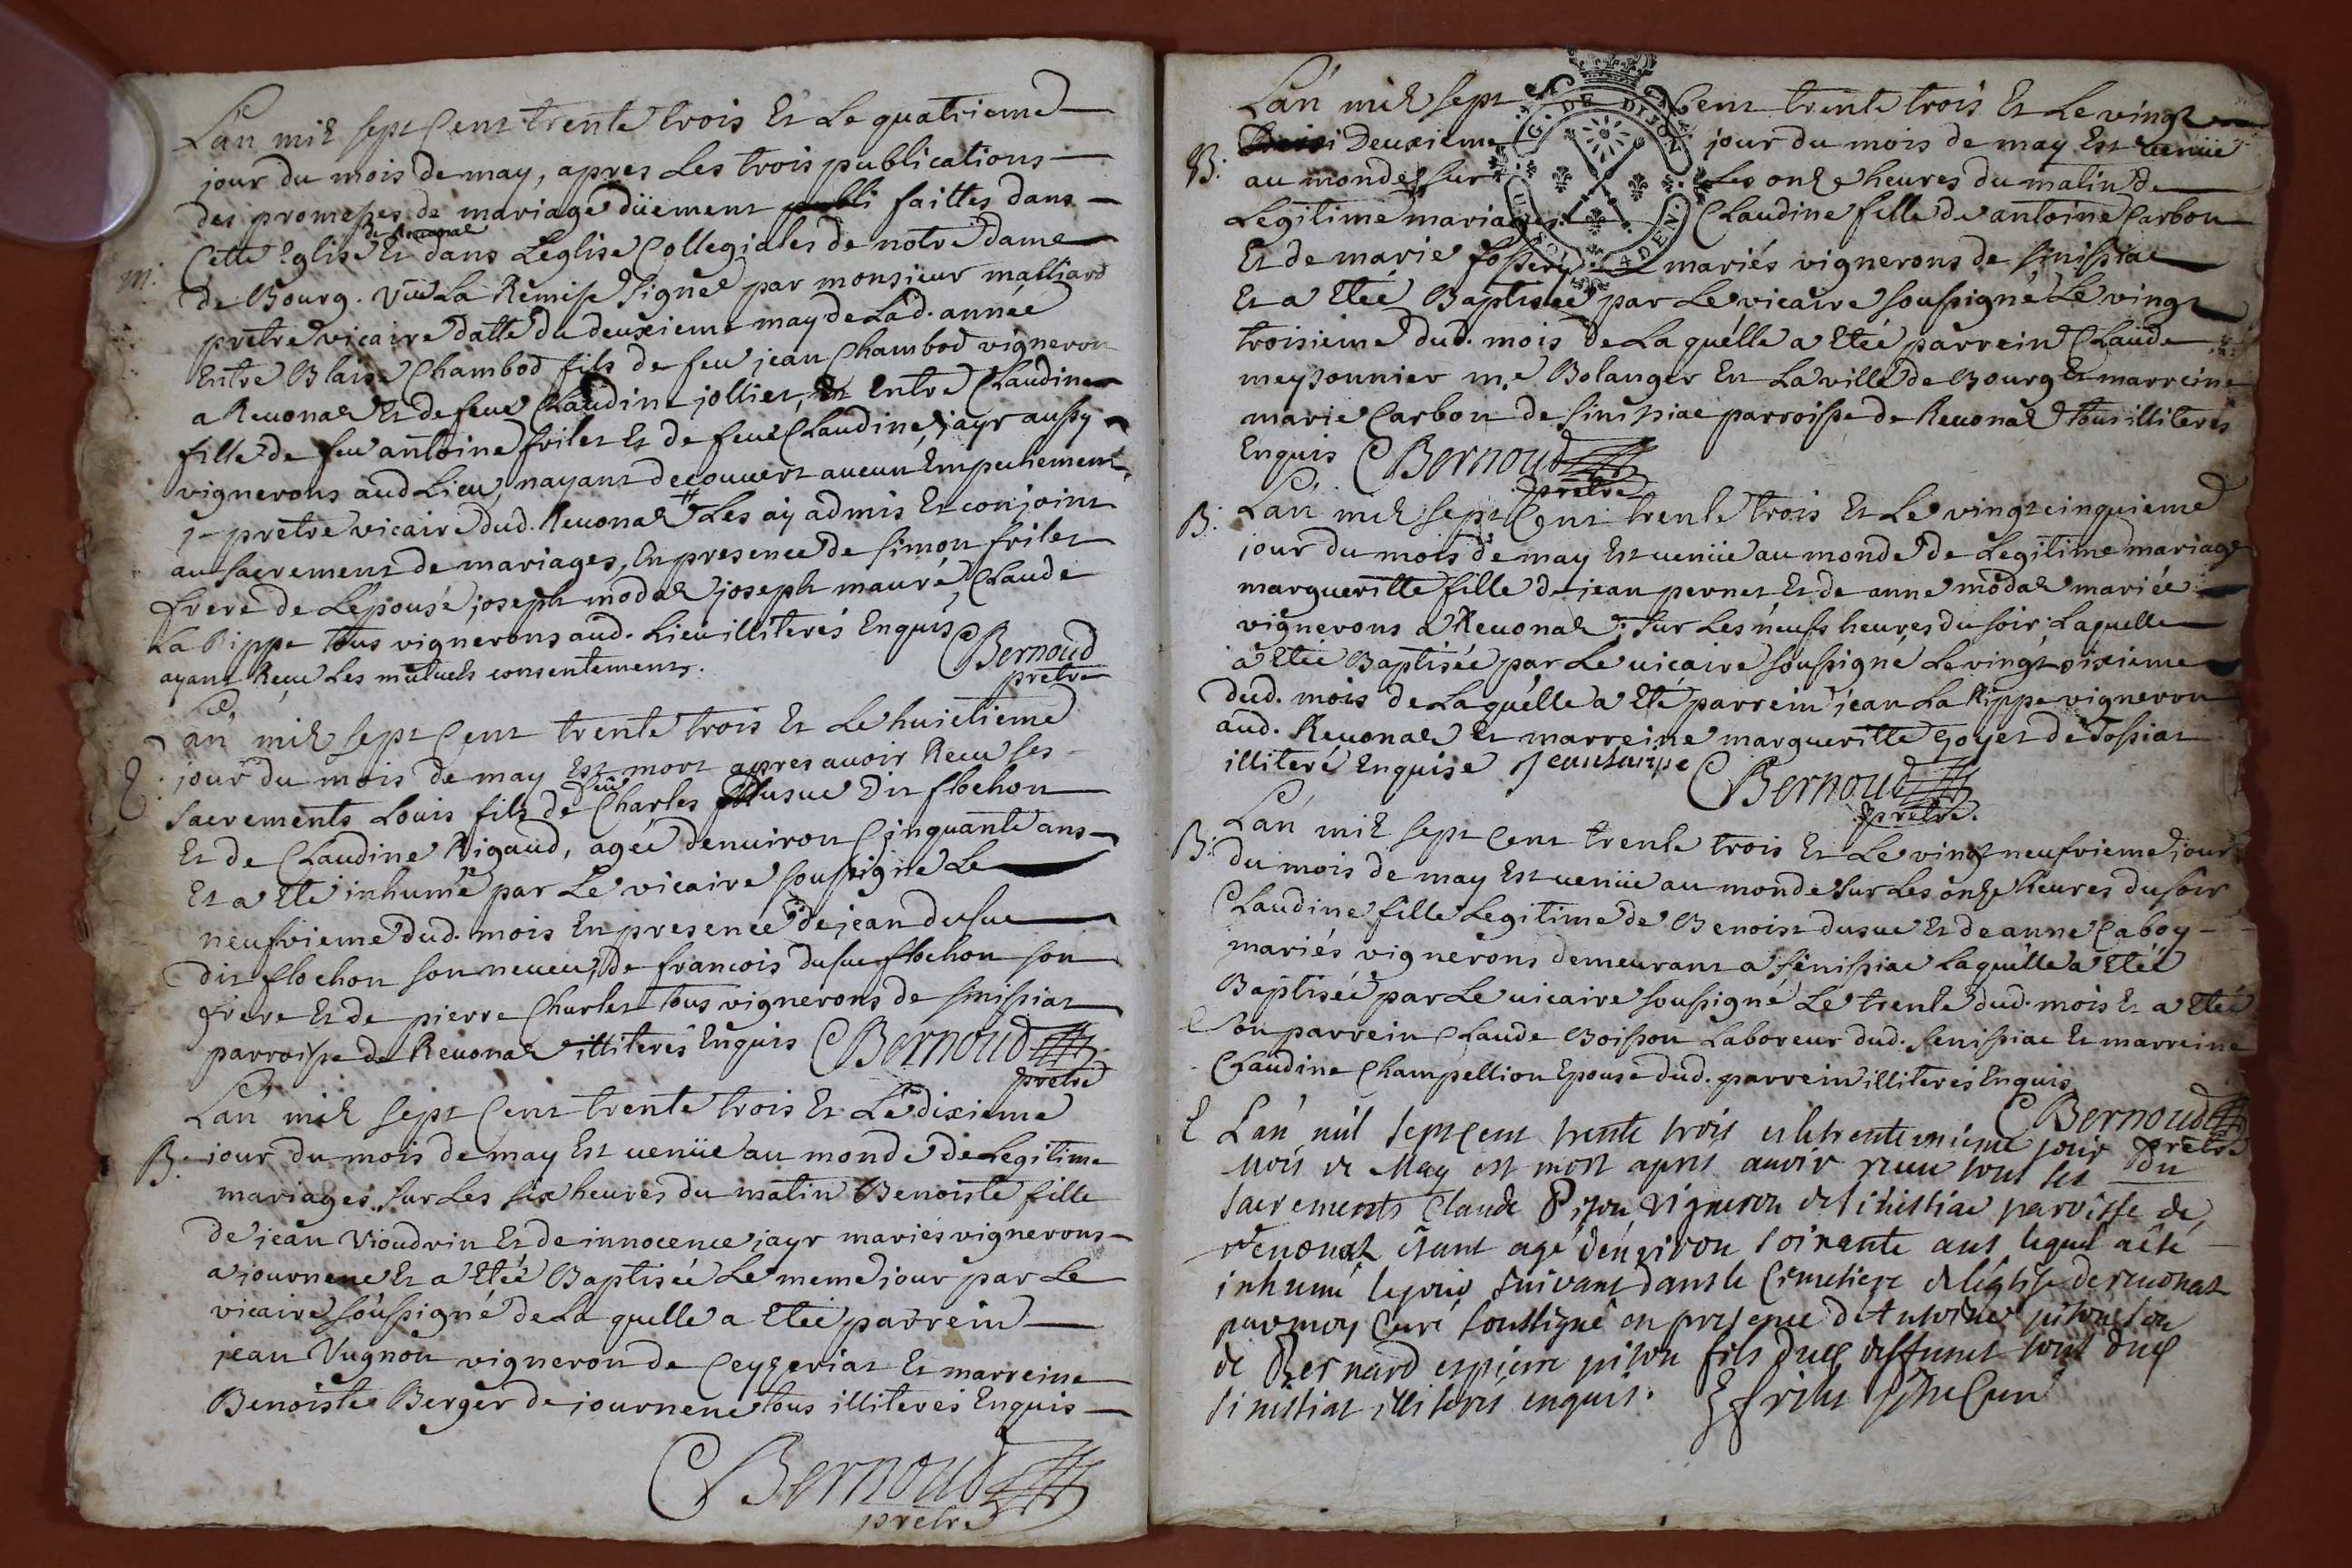 L'an mil sept Cent trente trois Et Le quatrieme
jour du mois de may, apres Les trois publications
des promesses de mariage düement publi faittes dans
de Reuonas
m. Cette Eglise Et dans L'eglise Collegiales de notre dame
de Bourg. Vüe La Remise signée par monsieur malliard
pretre vicaire datté du deuxieme may de Lad. année
Entre Blaise Chambod fils de feu jean Chambod vigneron
a Reuonas Et de feue Claudine jollier, Et Entre Claudine
fille de feu antoine frilet Et de feue Claudine jayr aussy
vignerons aud Lieu, nayant decouvert aucun Empechement
je pretre vicaire dud. Reuonas # Les ay admis Et conjoint
au sacrement de mariages, En presence de simon frilet
frere de L'epouse, joseph modas joseph mauré, Claude
La Rippe tous vignerons aud. Lieu illiterés Enquis
ayant Receu Les mutuels consentements. Bernoud
pretre
L'an mil sept Cent trente trois Et Le huictieme
E. jour du mois de may Est mort apres auoir Receu ses
feu
sacrements Louis fils de Charles dusuc Dit flochon
Et de Claudine Rigaud, agée denuiron Cinquante ans
Et a Eté inhumé par Le vicaire soussigné Le
neufvieme dud. mois En presence de jean dusuc
dit flochon son neueu, de francois dusuc flochon son
frere Et de pierre Charlet tous vignerons de sinissiat
parroisse de Reuonas illiterés Enquis Bernoud
pretre
L'an mil sept Cent trente trois Et Le dixieme
B. jour du mois de may Est uenüe au monde de Legitime
mariages sur Les six heures du matin Benoiste fille
de jean Vioudrin Et de innocence jayr mariés vignerons
a journene Et a Etéé Baptisée Le meme jour par Le
vicaire soussigné de La quelle a Etéé parrein
jean Vugnon vigneron de Ceyzeriat Et marreine
Benoiste Berger de journene tous illiterés Enquis
Bernoud
pretre
L'an mil sept Cent trente trois Et Le vingt
B. Deuxieme jour du mois de may Est uenüe
au monde sur Les onze heures du matin de
Legitime mariages Claudine fille de antoine Carbon
G. DE DIJON
Et de marie mariés vignerons de sinissiac
Et a Etéé Baptisée par Le vicaire soussigné Le vingt
troisieme dud. mois de La quélle a Etéé parrein Claude
meysonnier m.e Bolanger En La ville de Bourg Et marreine
marie Carbon de sinissiac parroisse de Reuonas tous illiterés
Enquis Bernoud
pretre
B. L'an mil sept Cent trente trois Et Le vingt cinquieme
jour du mois de may Est uenüe au monde de Legitime mariage
margueritte fille de jean pernet Et de anne modas mariée
vignerons a Reuonas, sur Les neufs heures du soir Laquelle
a Etéé Baptisée par Le uicaire soussigné Le vingt sixieme
dud. mois de Laquélle a Eté parrein jean La Rippe vigneron
aud. Reuonas Et marreine margueritte goyet de Tossiat
illiteré Enquise Jean Laripe Bernoud
pretre.
L'an mil sept Cent trente trois Et Le vingt neufvieme jour
B. du mois de may Est uenüe au monde sur Les onze heures du soir
Claudine fille Legitime de Benoist dusuc Et de anne Caboy
mariés vignerons demeurant a sinissiac Laquélle a Etéé
Baptisée par Le uicaire soussigné Le trente dud. mois Et a Etéé
son parrein Claude Boisson Laboreur dud. senissiac Et marreine
Claudine Champellion Epouse dud. parrein illiterés Enquis
Bernoud
pretre
E L'an mil sept Cent trente trois et le trente unieme jour du
mois de May est mort apres auoir receu tous ses
sacrements Claude Piton vigneron de sinissiac paroisse de
reuonat étant agé d'environ soixante ans lequel a été
inhumé le jour suivant dans le Cimetiere de l'église de reuonat
par moy Curé soussigné en presence d'Antoine piton
de Bernard et pierre piton fils dud. deffunct tous dud
sinissiat illiterés enquis. frilet